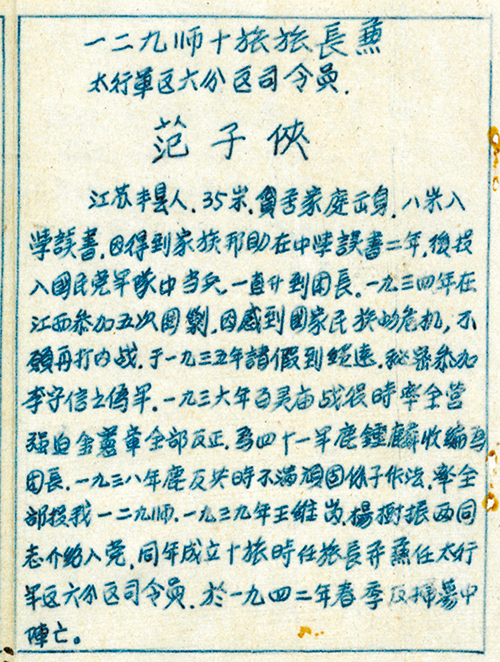 一二九师十旅旅長兼
太行軍区六分区司令員.
范子俠
江苏丰县人. 35岁. 貧苦家庭出身. 八岁入
學讀書. 因得到家族邦助在中學讀書二年. 後投
入國民党軍隊中当兵. 一直升到团長. 一九三四年在
江西参加五次围剿. 因感到國家民族的危机, 不
願再打内战. 于一九三五年請假到綏遠. 秘密参加
李守信之偽軍. 一九三六年百灵庙战役時率全营
强迫金憲章全部反正. 為四十一軍鹿鍾麟收編為
团長. 一九三八年鹿反共時不满頑固份子作法. 率全
部投我一二九师. 一九三九年王維崗. 楊樹振两同
志介紹入党. 同年成立十旅時任旅長并兼任太行
軍区六分区司令員. 於一九四二年春季反掃蕩中
陣亡。